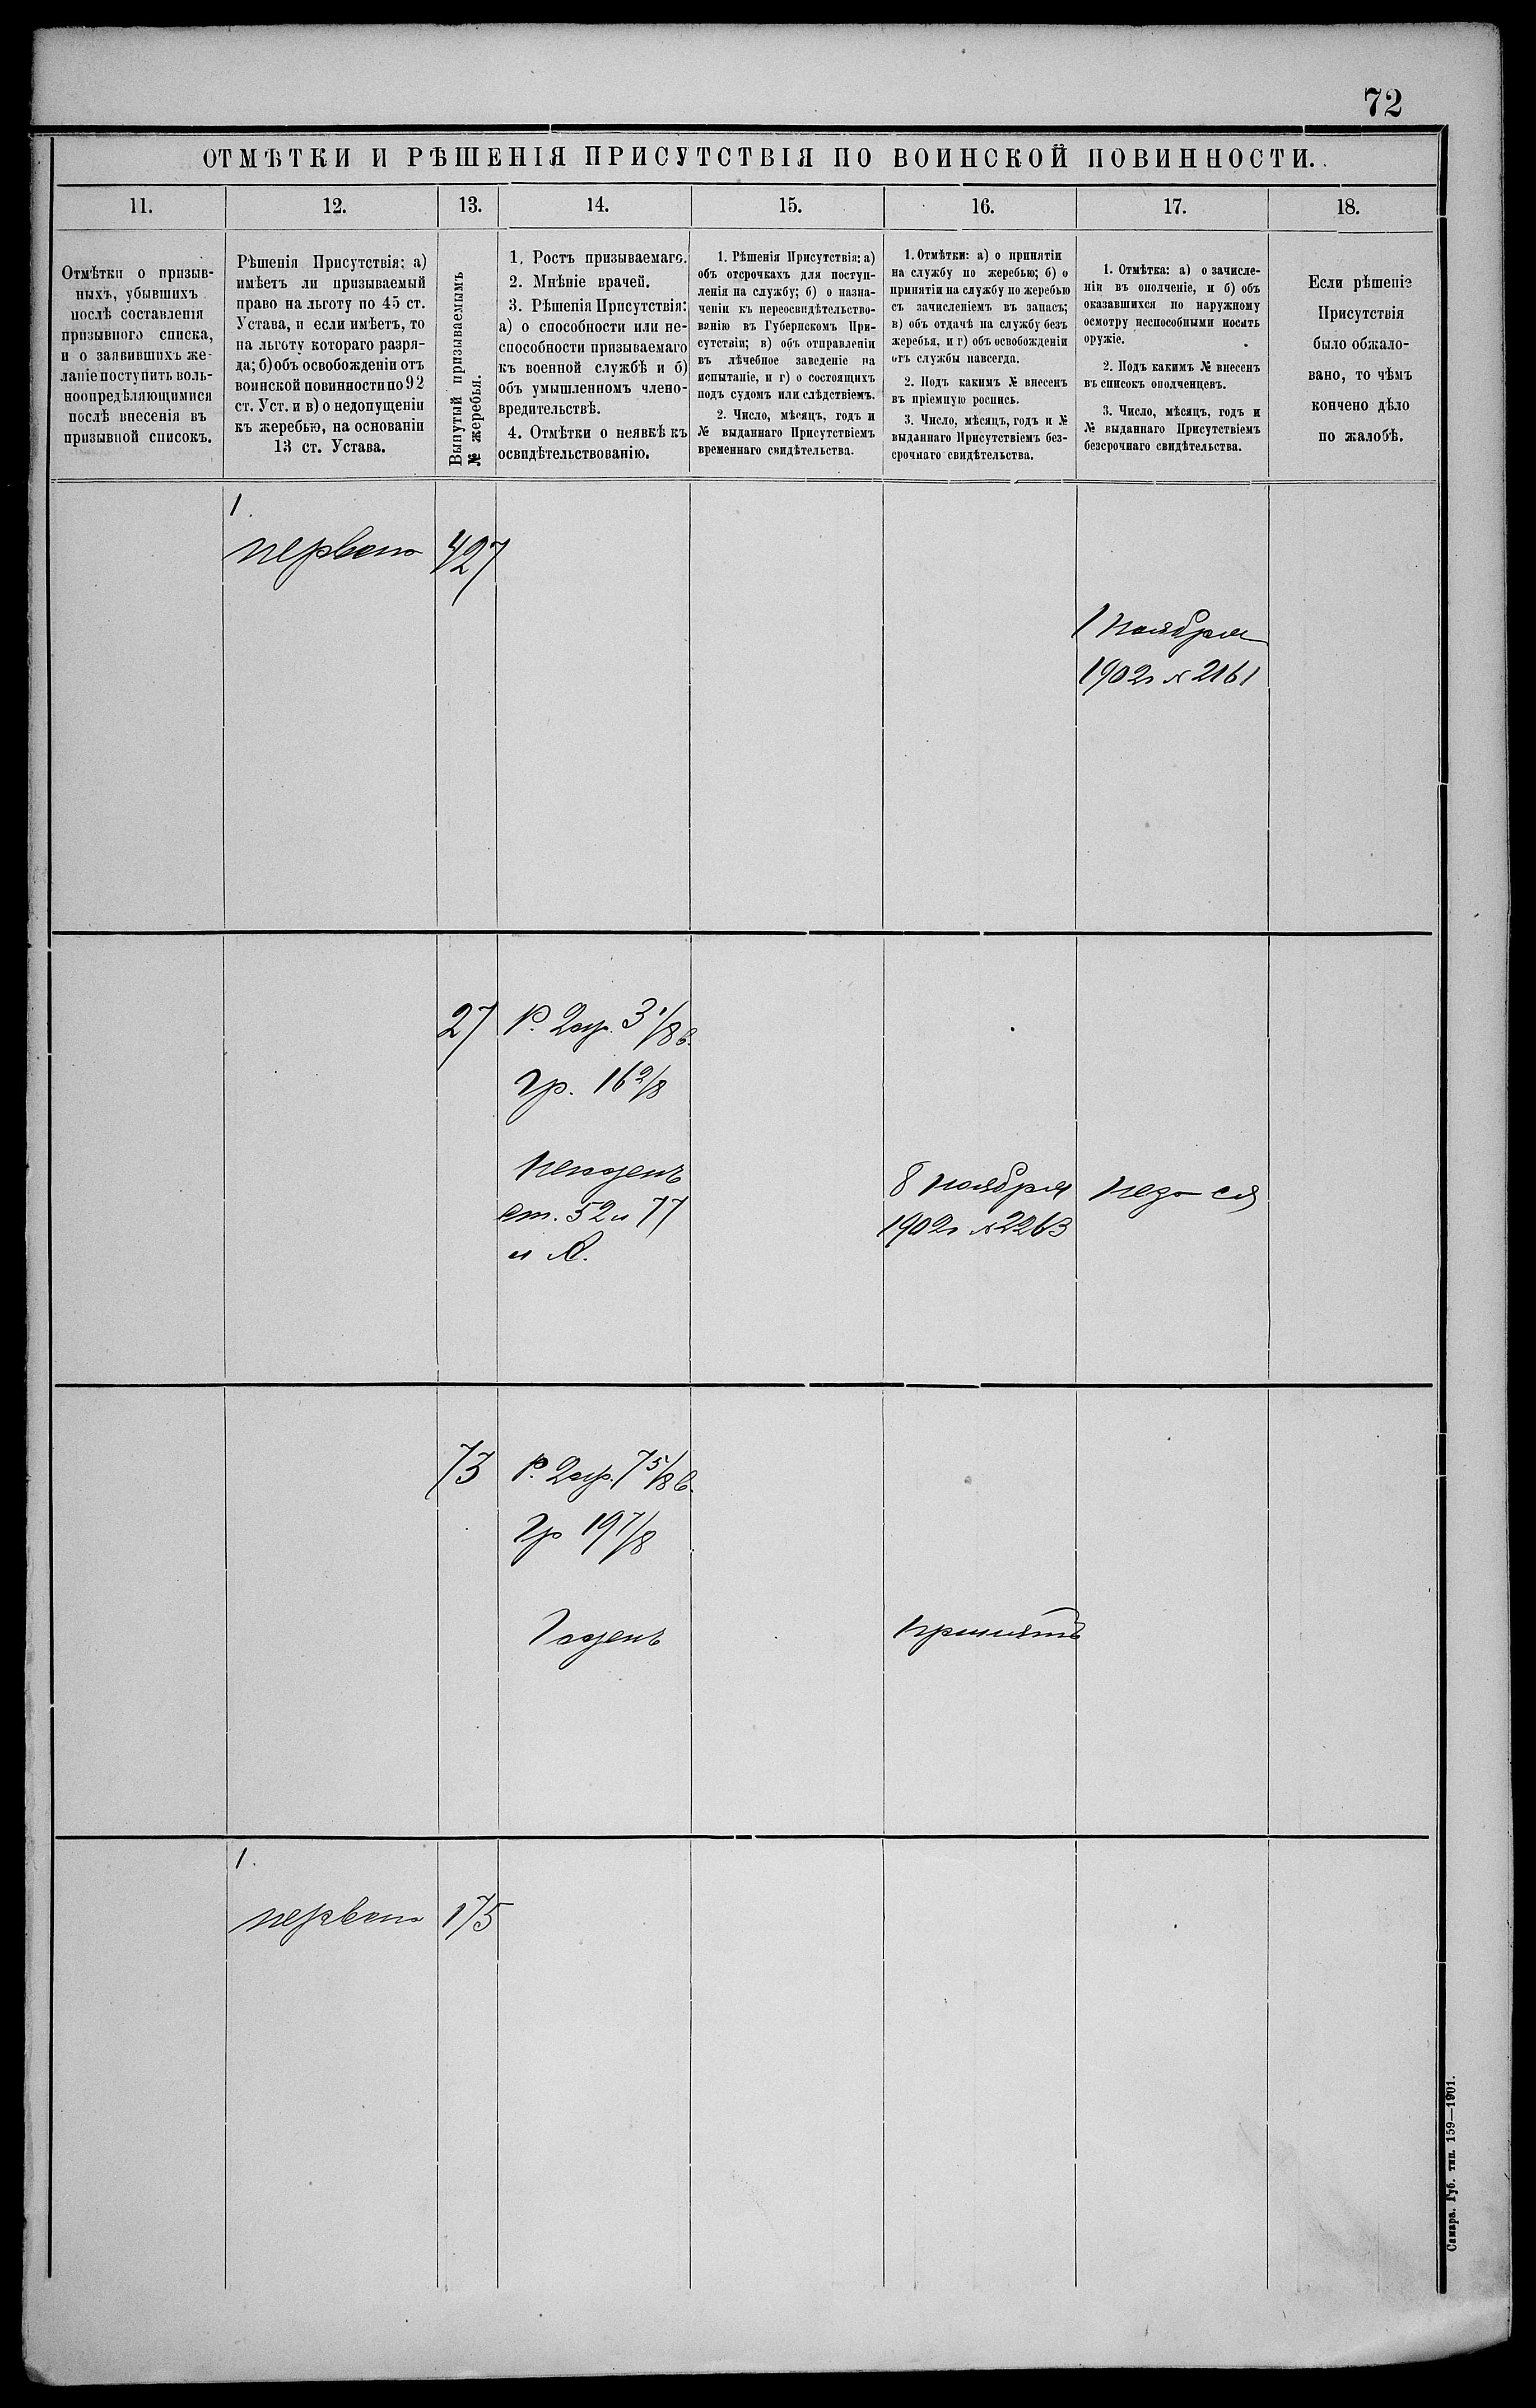 72
ОТМѢТКИ И РѢШЕНІЯ ПРИСУТСТВІЯ ПО ВОИНСКОЙ ПОВИННОСТИ.
11.
12.
13.
14.
15.
16.
17.
18.
Отмѣтки о призыв-
ныхъ, убывшихъ
послѣ составленія
призывного списка,
и о заявившихъ же-
ланіе поступить воль-
ноопредѣляющимися
послѣ внесенія въ
призывной списокъ.
Рѣшенія Присутствія: а)
имѣетъ ли призываемый
право на льготу по 45 ст.
Устава, и если имѣетъ, то
на льготу котораго разря-
да; б) объ освобожденіи отъ
воинской повинности по 92
ст. Уст. и в) о недопущеніи
къ жеребью, на основаніи
13 ст. Устава.
Вынутый призываемымъ
№ жеребья.
1. Ростъ призываемаго.
2. Мнѣніе врачей.
3. Рѣшенія Присутствія:
а) о способности или не-
способности призываемаго
къ военной службѣ и б)
объ умышленномъ члено-
вредительствѣ.
4. Отмѣтки о неявкѣ къ
освидѣтельствованію.
1. Рѣшенія Присутствія: а)
объ отсрочкахъ для поступ-
ленія на службу; б) о назна-
ченіи къ переосвидѣтельство-
ванію въ Губернскомъ При-
сутствіи; в) объ отправленіи
въ лѣчебное заведеніе на
испытаніе, и г) о состоящихъ
подъ судомъ или слѣдствіемъ.
2. Число, мѣсяцъ, годъ и
№ выданнаго Присутствіемъ
временнаго свидѣтельства.
1. Отмѣтки: а) о принятіи
на службу по жеребью; б) о
принятіи на службу по жеребью
съ зачисленіемъ въ запасъ;
в) объ отдачѣ на службу безъ
жеребья, и г) объ освобожденіи
отъ службы навсегда.
2. Подъ какимъ № внесенъ
въ пріемную роспись.
3. Число, мѣсяцъ, годъ и №
выданнаго Присутствіемъ без-
срочнаго свидѣтельства.
1. Отмѣтка: а) о зачисле-
ніи въ ополченіе, и б) объ
оказавшихся по наружному
осмотру неспособными носить
оружіе.
2. Подъ какимъ № внесенъ
въ списокъ ополченцевъ.
3. Число, мѣсяцъ, годъ и
№ выданнаго Присутствіемъ
безсрочнаго свидѣтельства.
Если рѣшеніе
Присутствія
было обжало-
вано, то чѣмъ
кончено дѣло
по жалобѣ.
1.
427
1 Ноября
1902г № 2161
27
Р. 2 ар. 3 1/8 в.
Гр. 16 2/8
Негоденъ
ст. 52 и 77
и А.
8 Ноября
1902г № 2263
73
Р. 2 ар. 7 5/8 в.
Гр 19 7/8
Годенъ
принятъ
1.
175
Самара. Губ. тип. 159—1901.